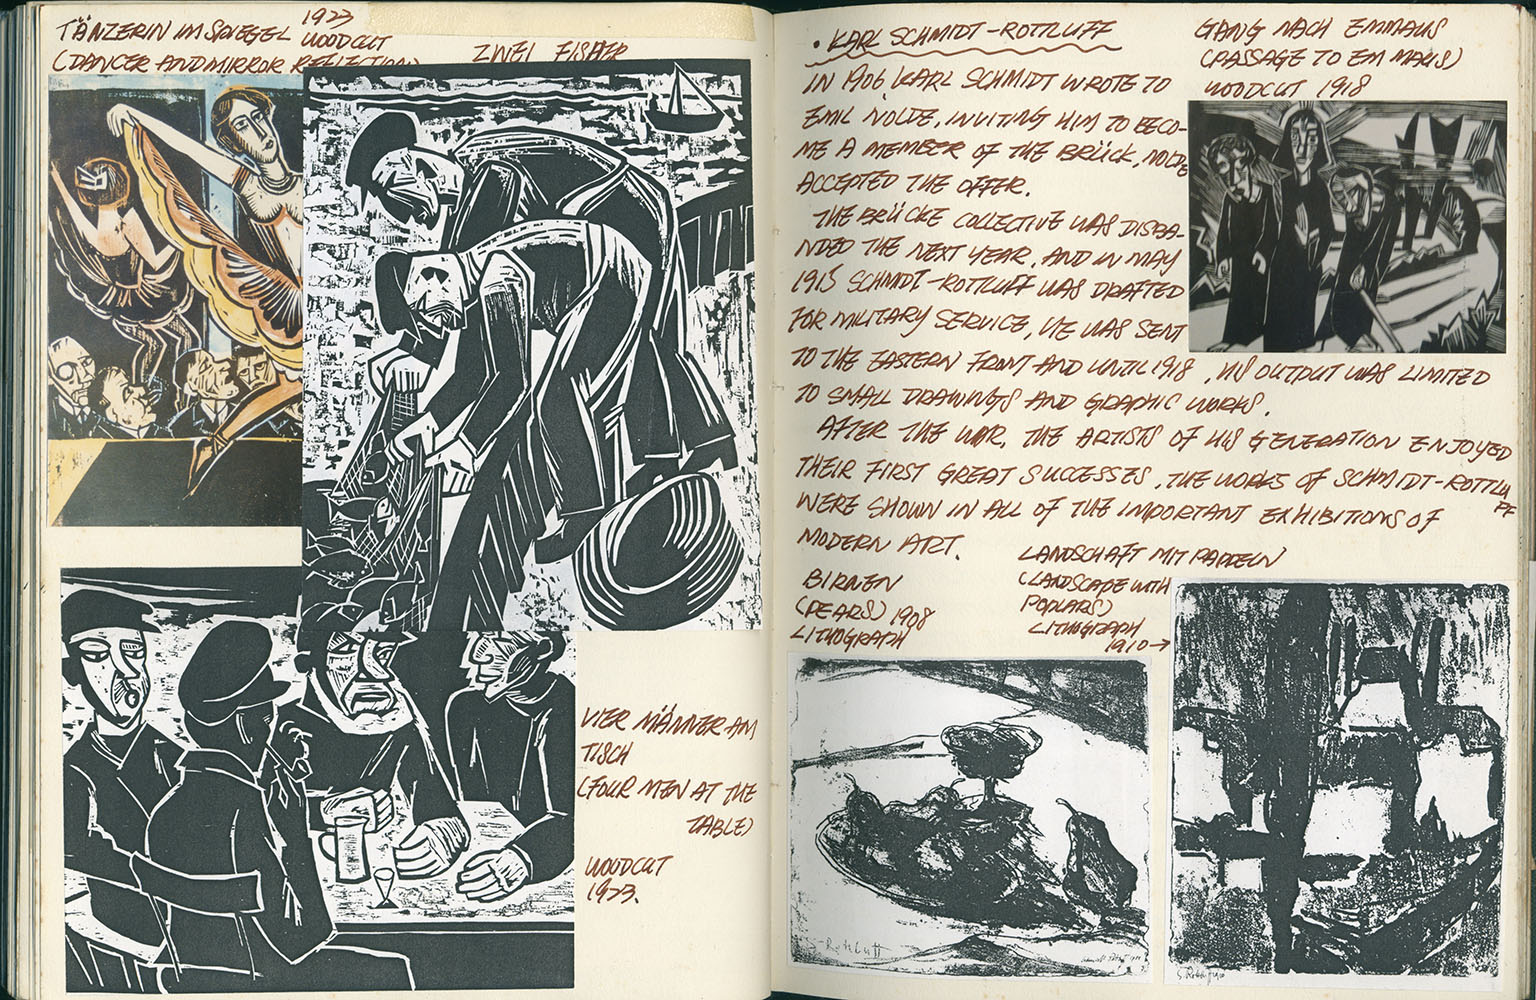 TÄNZERIN IM SPIEGEL 1923
WOODCUT
(DANCER AND MIRROR REFLECTION)
ZWEI FISHER
VIER MÄNNER AM
TISCH
(FOUR MEN AT THE
TABLE)
WOODCUT
1923.
• KARL SCHMIDT-ROTTLUFF
IN 1906, KARL SCHMIDT WROTE TO
EMIL NOLDE, INVITING HIM TO BECO-
ME A MEMBER OF THE BRÜCK, NOLDE
ACCEPTED THE OFFER.
THE BRÜCKE COLLECTIVE WAS DISBA-
NDED THE NEXT YEAR. AND IN MAY
1915 SCHMIDT-ROTTLUFF WAS DRAFTED
FOR MILITARY SERVICE, HE WAS SENT
TO THE EASTERN FRONT AND UNTIL 1918, HIS OUTPUT WAS LIMITED
TO SMALL DRAWINGS AND GRAPHIC WORKS.
AFTER THE WAR, THE ARTISTS OF HIS GENERATION ENJOYED
THEIR FIRST GREAT SUCCESSES, THE WORKS OF SCHMIDT-ROTTLU
FF
WERE SHOWN IN ALL OF THE IMPORTANT EXHIBITIONS OF
MODERN ART.
GANG NACH EMMAUS
(PASSAGE TO EM MAUS)
WOODCUT 1918
BIRNEN
(PEARS) 1908
LITHOGRAPH
LANDSCHAFT MIT PAPPELN
(LANDSCAPE WITH
POPLARS)
LITHOGRAPH
1910→
S-Rottluff